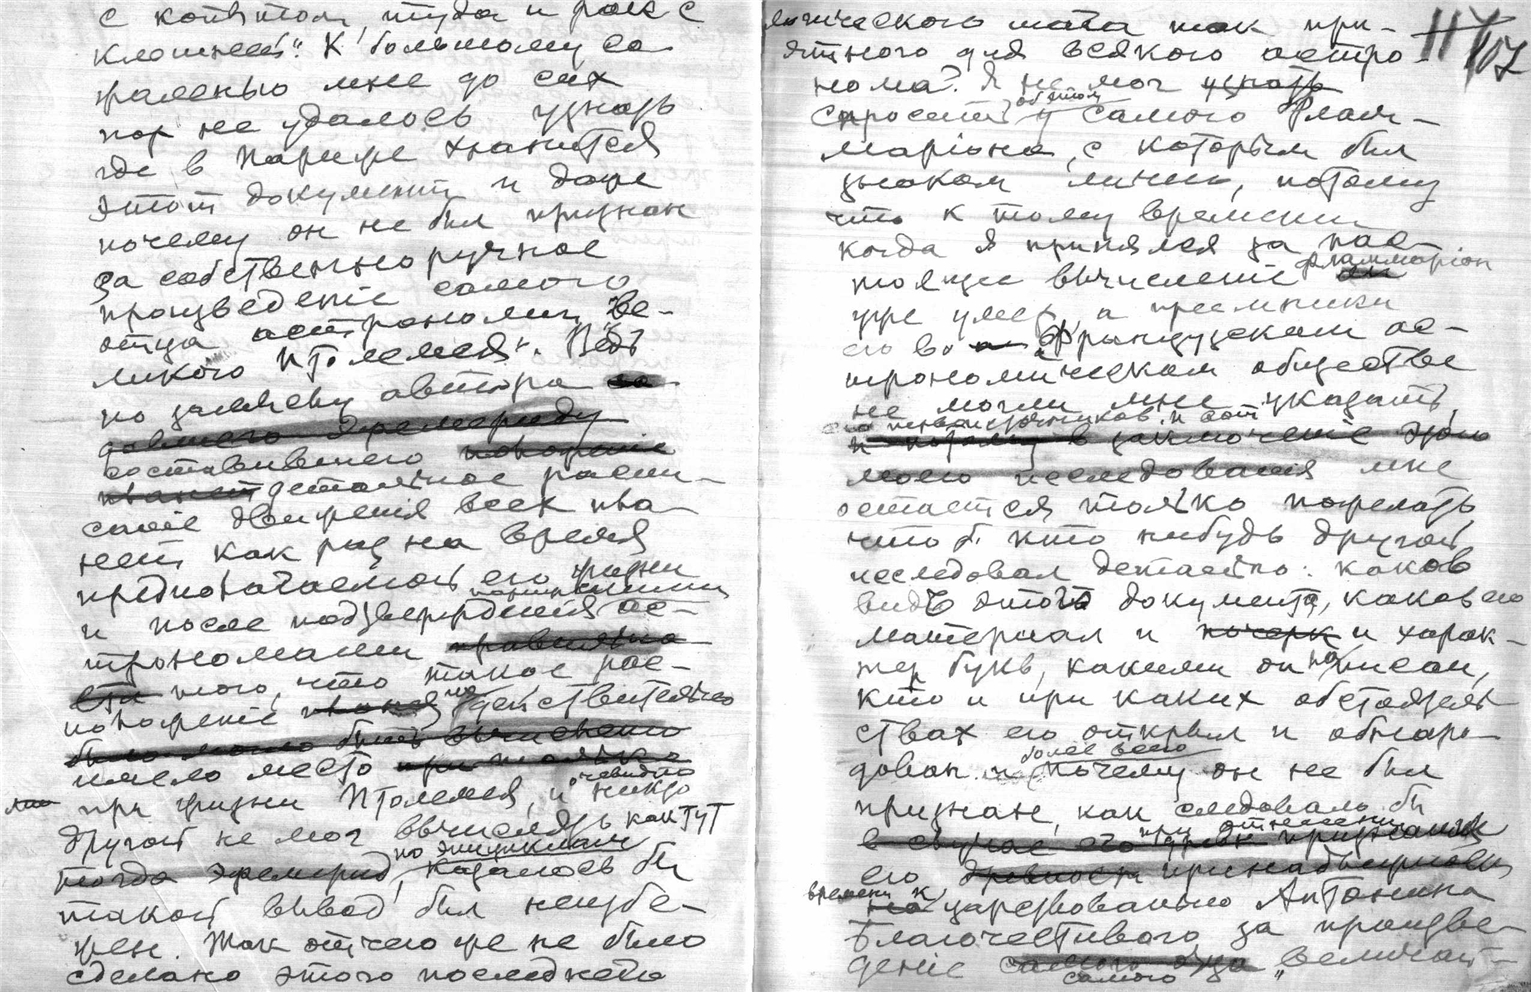 с копытом, туда и рак с
клешней". К большому со
жаленью мне до сих
пор не удалось узнать
где в Париже хранится
этот документ и даже
почему он не был признан
за собственноручное
произведеніе самого
отца астрономіи "Ве-
ликого Птолемея". Ведь
по зачем автора
давшего Эфемериду
составившего
детальное распи-
саніе движенія всех пла-
нет как раз на время
предполагаемой его жизни
и после подтвержденія ас-
трономами правильно
сти того, что такое рас-
положеніе действительно
было могло быть вычислено
имело место при только
при жизни Птолемея, и очевидно никто
другой не мог вычислять как тут
тогда эфемерид по эпициклам, казалось бы
такой вывод был неизбе-
жен. Так отчего же не было
сделано этого последнего
117
107
логического шага так при-
ятного для всякого астро-
нома? Я не мог узнать
спросить об этом у самого Флам-
маріона, с которым был
знаком лично, потому
что к тому времени
когда я принялся за нас-
тоящее вычисленіе Фламмаріон
уже умер, а преемники
его во Французском ас-
трономическом обществе
не могли мне указать
его первоисточников. И вот
и потому в заключеніе этого
моего исследования мне
остается только пожелать
чтоб кто нибудь другой
исследовал детально: каков
видъ этого документа, каков его
материал и почерк и харак-
тер букв, какими он написан,
кто и при каких обстоятель-
ствах его открыл и обнаро-
довал и более всего почему он не был
признан, как следовало бы
в случае его при отнесении
его древность принадлежности
времени к царствованию Антонина
Благочестивого, за произве-
деніе самого "величай-